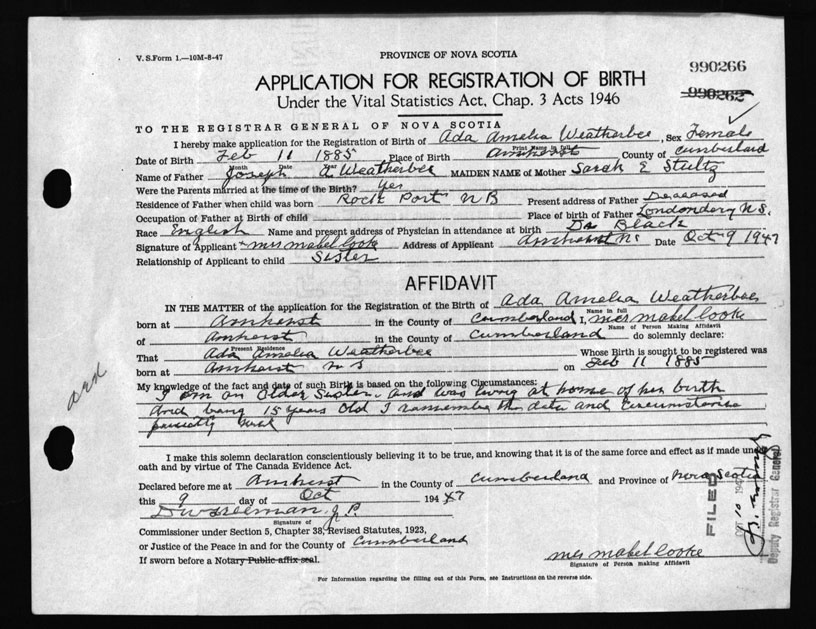 V. S. Form 1.—10M-8-47
PROVINCE OF NOVA SCOTIA
990266
990262
APPLICATION FOR REGISTRATION OF BIRTH
Under the Vital Statistics Act, Chap. 3 Acts 1946
TO THE REGISTRAR GENERAL OF NOVA SCOTIA
I hereby make application for the Registration of Birth of Ada Amelia Weatherbee, Sex Female
Print Name in full
Date of Birth Feb 11 1885 Place of Birth Amherst County of Cumberland
Month Date Year
Name of Father Joseph A Weatherbee MAIDEN NAME of Mother Sarah E Stultz
Were the Parents married at the time of the Birth? Yes
Residence of Father when child was born Rock Port N B Present address of Father Deseased
Occupation of Father at Birth of child Place of birth of Father Londondery N.S.
Race English Name and present address of Physician in attendance at birth Dr Black
Signature of Applicant Mrs Mabel Cooke Address of Applicant Amherst NS Date Oct 9 1947
Relationship of Applicant to child Sister
AFFIDAVIT
IN THE MATTER of the application for the Registration of the Birth of Ada Amelia Weatherbee
Name in full
born at Amherst in the County of Cumberland I, Mrs Mabel Cooke
Name of Person Making Affidavit
of Amherst in the County of Cumberland do solemnly declare:
Present Residence
That Ada Amelia Weatherbee Whose Birth is sought to be registered was
born at Amherst N S on Feb 11 1885
My knowledge of the fact and date of such Birth is based on the following Circumstances:
I am an Older Sister. and was living at home of her birth
and being 15 years old I remember the date and circumstance
ard
I make this solemn declaration conscientiously believing it to be true, and knowing that it is of the same force and effect as if made under
oath and by virtue of The Canada Evidence Act.
Declared before me at Amherst in the County of Cumberland and Province of Nova Scotia
this 9 day of Oct 1947
J.P.
Signature of
Commissioner under Section 5, Chapter 38, Revised Statutes, 1923,
or Justice of the Peace in and for the County of Cumberland
If sworn before a Notary Public affix seal.
Mrs Mabel Cooke
Signature of Person making Affidavit
FILED
OCT 10 1947
Deputy Registrar General
For Information regarding the filling out of this Form, see Instructions on the reverse side.